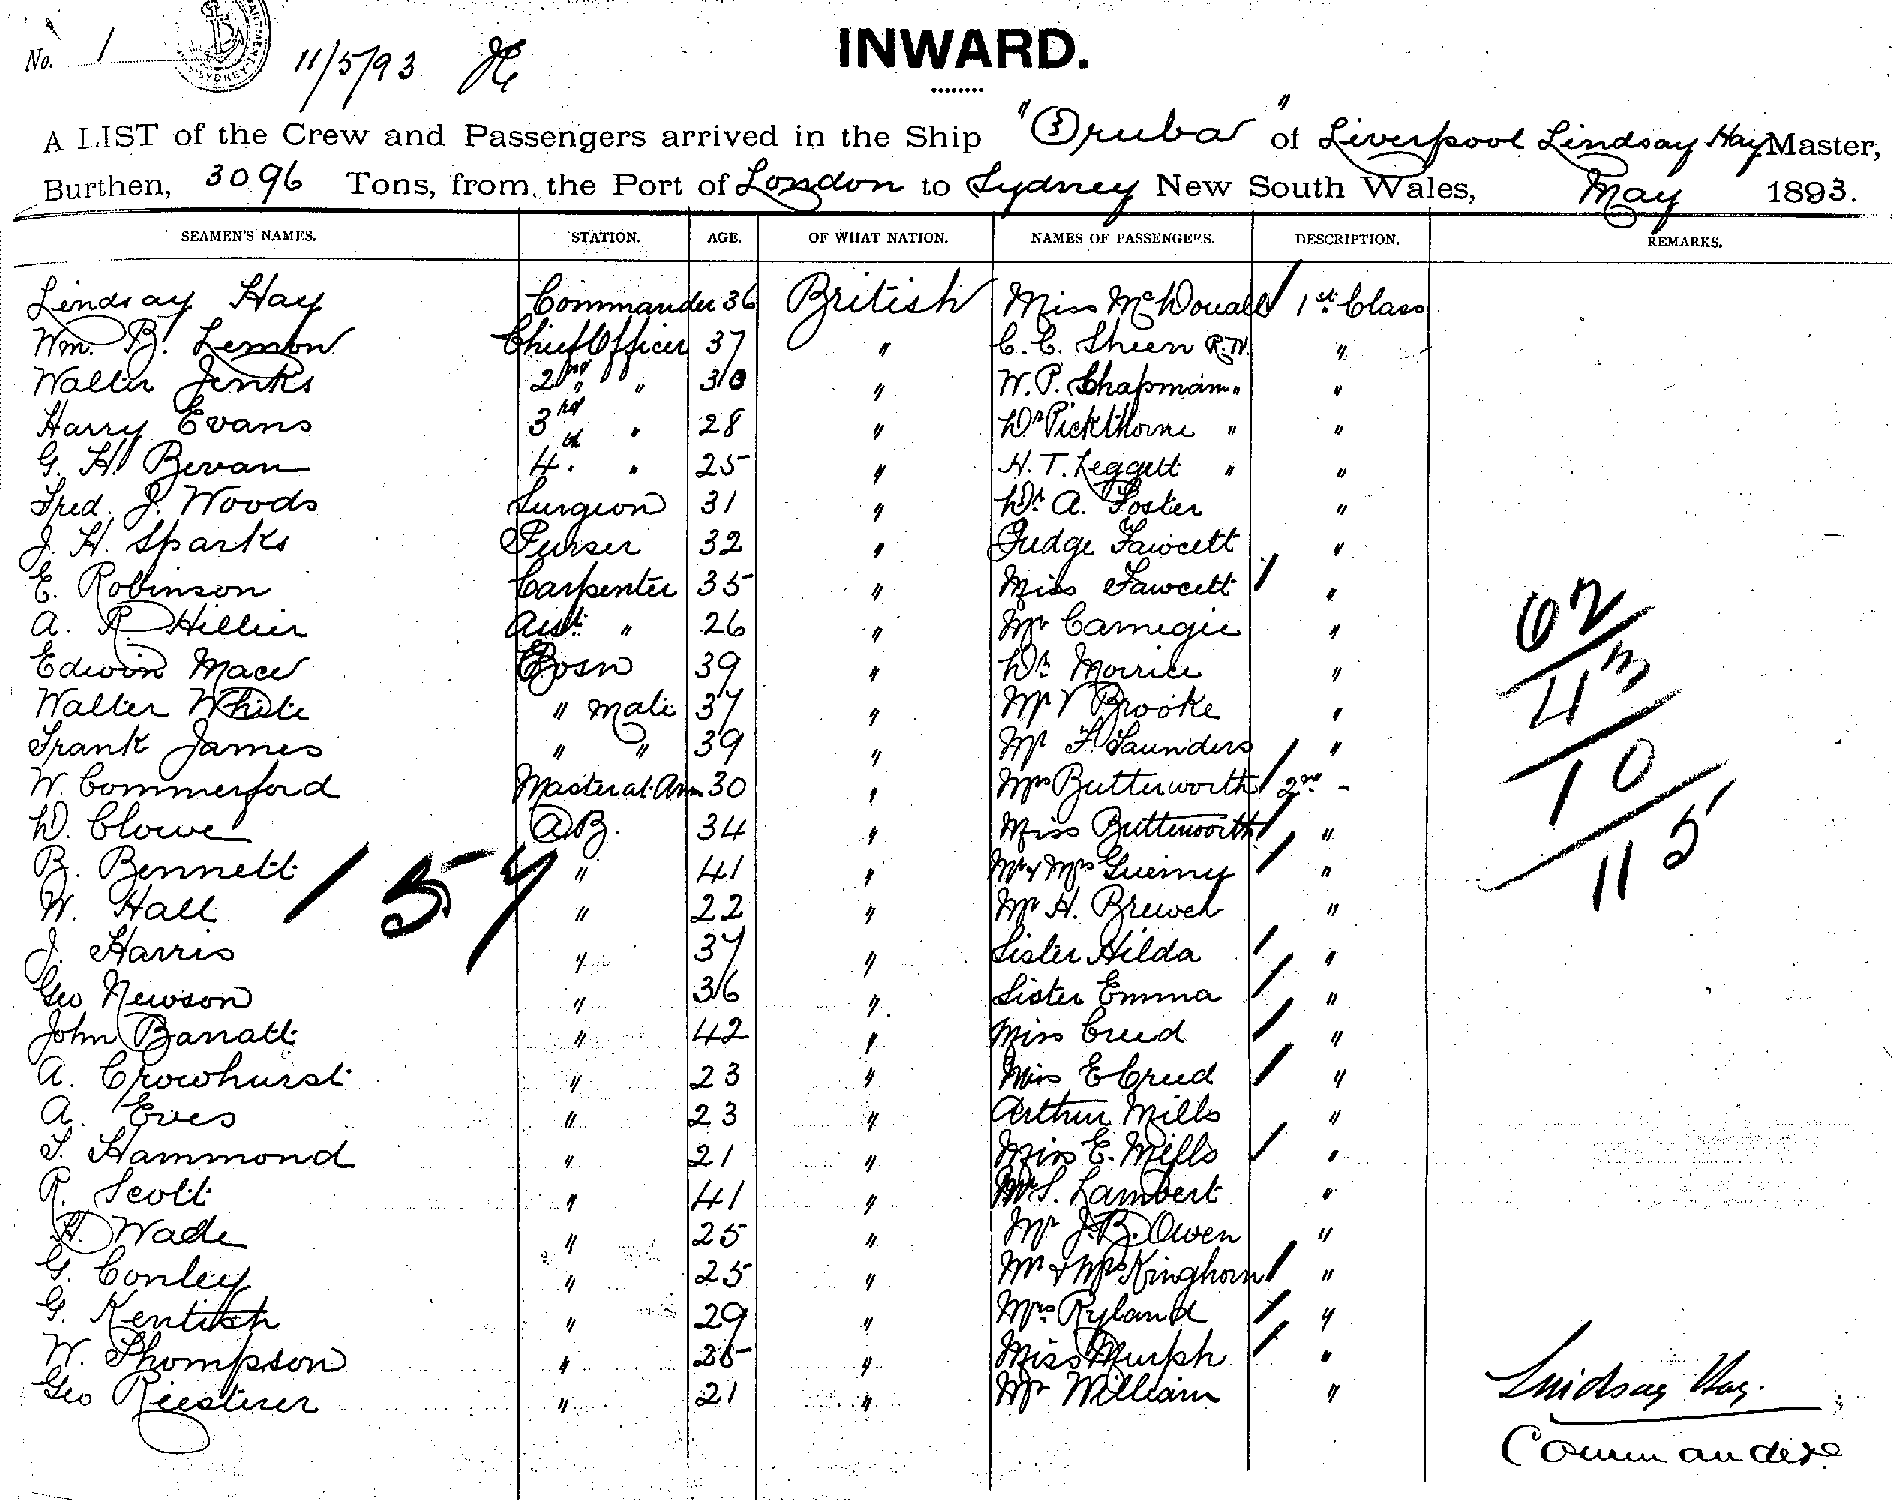 No. 1
SYDNEY
11/5/93
INWARD.
A LIST of the Crew and Passengers arrived in the Ship "Oruba" of Liverpool Lindsay Hay Master,
Burthen, 3096 Tons, from the Port of London to Sydney New South Wales, May 1893.
SEAMEN'S NAMES. STATION. AGE. OF WHAT NATION. NAMES OF PASSENGERS. DESCRIPTION. REMARKS.
Lindsay Hay Commander 36 British Miss McDouall 1st Class
Wm. B. Lemon Chief Officer 37 " C. C. Sheen R.N. "
Walter Jenks 2nd " 30 " W. P. Chapman " "
Harry Evans 3rd " 28 " Dr Pickthorne " "
G. H. Bevan 4th " 25 " H. T. Leggett " "
Fred. J. Woods Surgeon 31 " Dr. A. Foster "
J. H. Sparks Purser 32 " Judge Fawcett "
E. Robinson Carpenter 35 " Miss Fawcett "
A. R. Hillier Asst. " 26 " Mr Carnegie "
Edwin Mace Bosn 39 " Dr. Morrice "
Walter White " Mate 37 " Mr V Brooke "
Frank James " " 39 " Mr F. Saunders "
W. Commerford Master at Arm 30 " Mrs Butterworth 2nd -
D. Clowe A.B. 34 " Miss Butterworth "
B. Bennett " 41 " Mr & Mrs Guerny "
W. Hall " 22 " Mr H. Brewer "
157
J. Harris " 37 " Sister Hilda "
Geo Newson " 36 " Sister Emma "
John Barratt " 42 " Miss Creed "
A. Crowhurst " 23 " Miss E Creed "
A. Eves " 23 " Arthur Mills "
T. Hammond " 21 " Miss E. Mills "
R. Scott " 41 " Mr S. Lambert "
H. Wade " 25 " Mr J. B. Owen "
G. Conley " 25 " Mr & Mrs Kinghorn "
G. Kentish " 29 " Mrs Ryland "
W. Thompson " 35 " Miss Murph "
Geo Riesterer " 21 " Mr William "
62
43
10
115
Lindsay Hay.
Commander